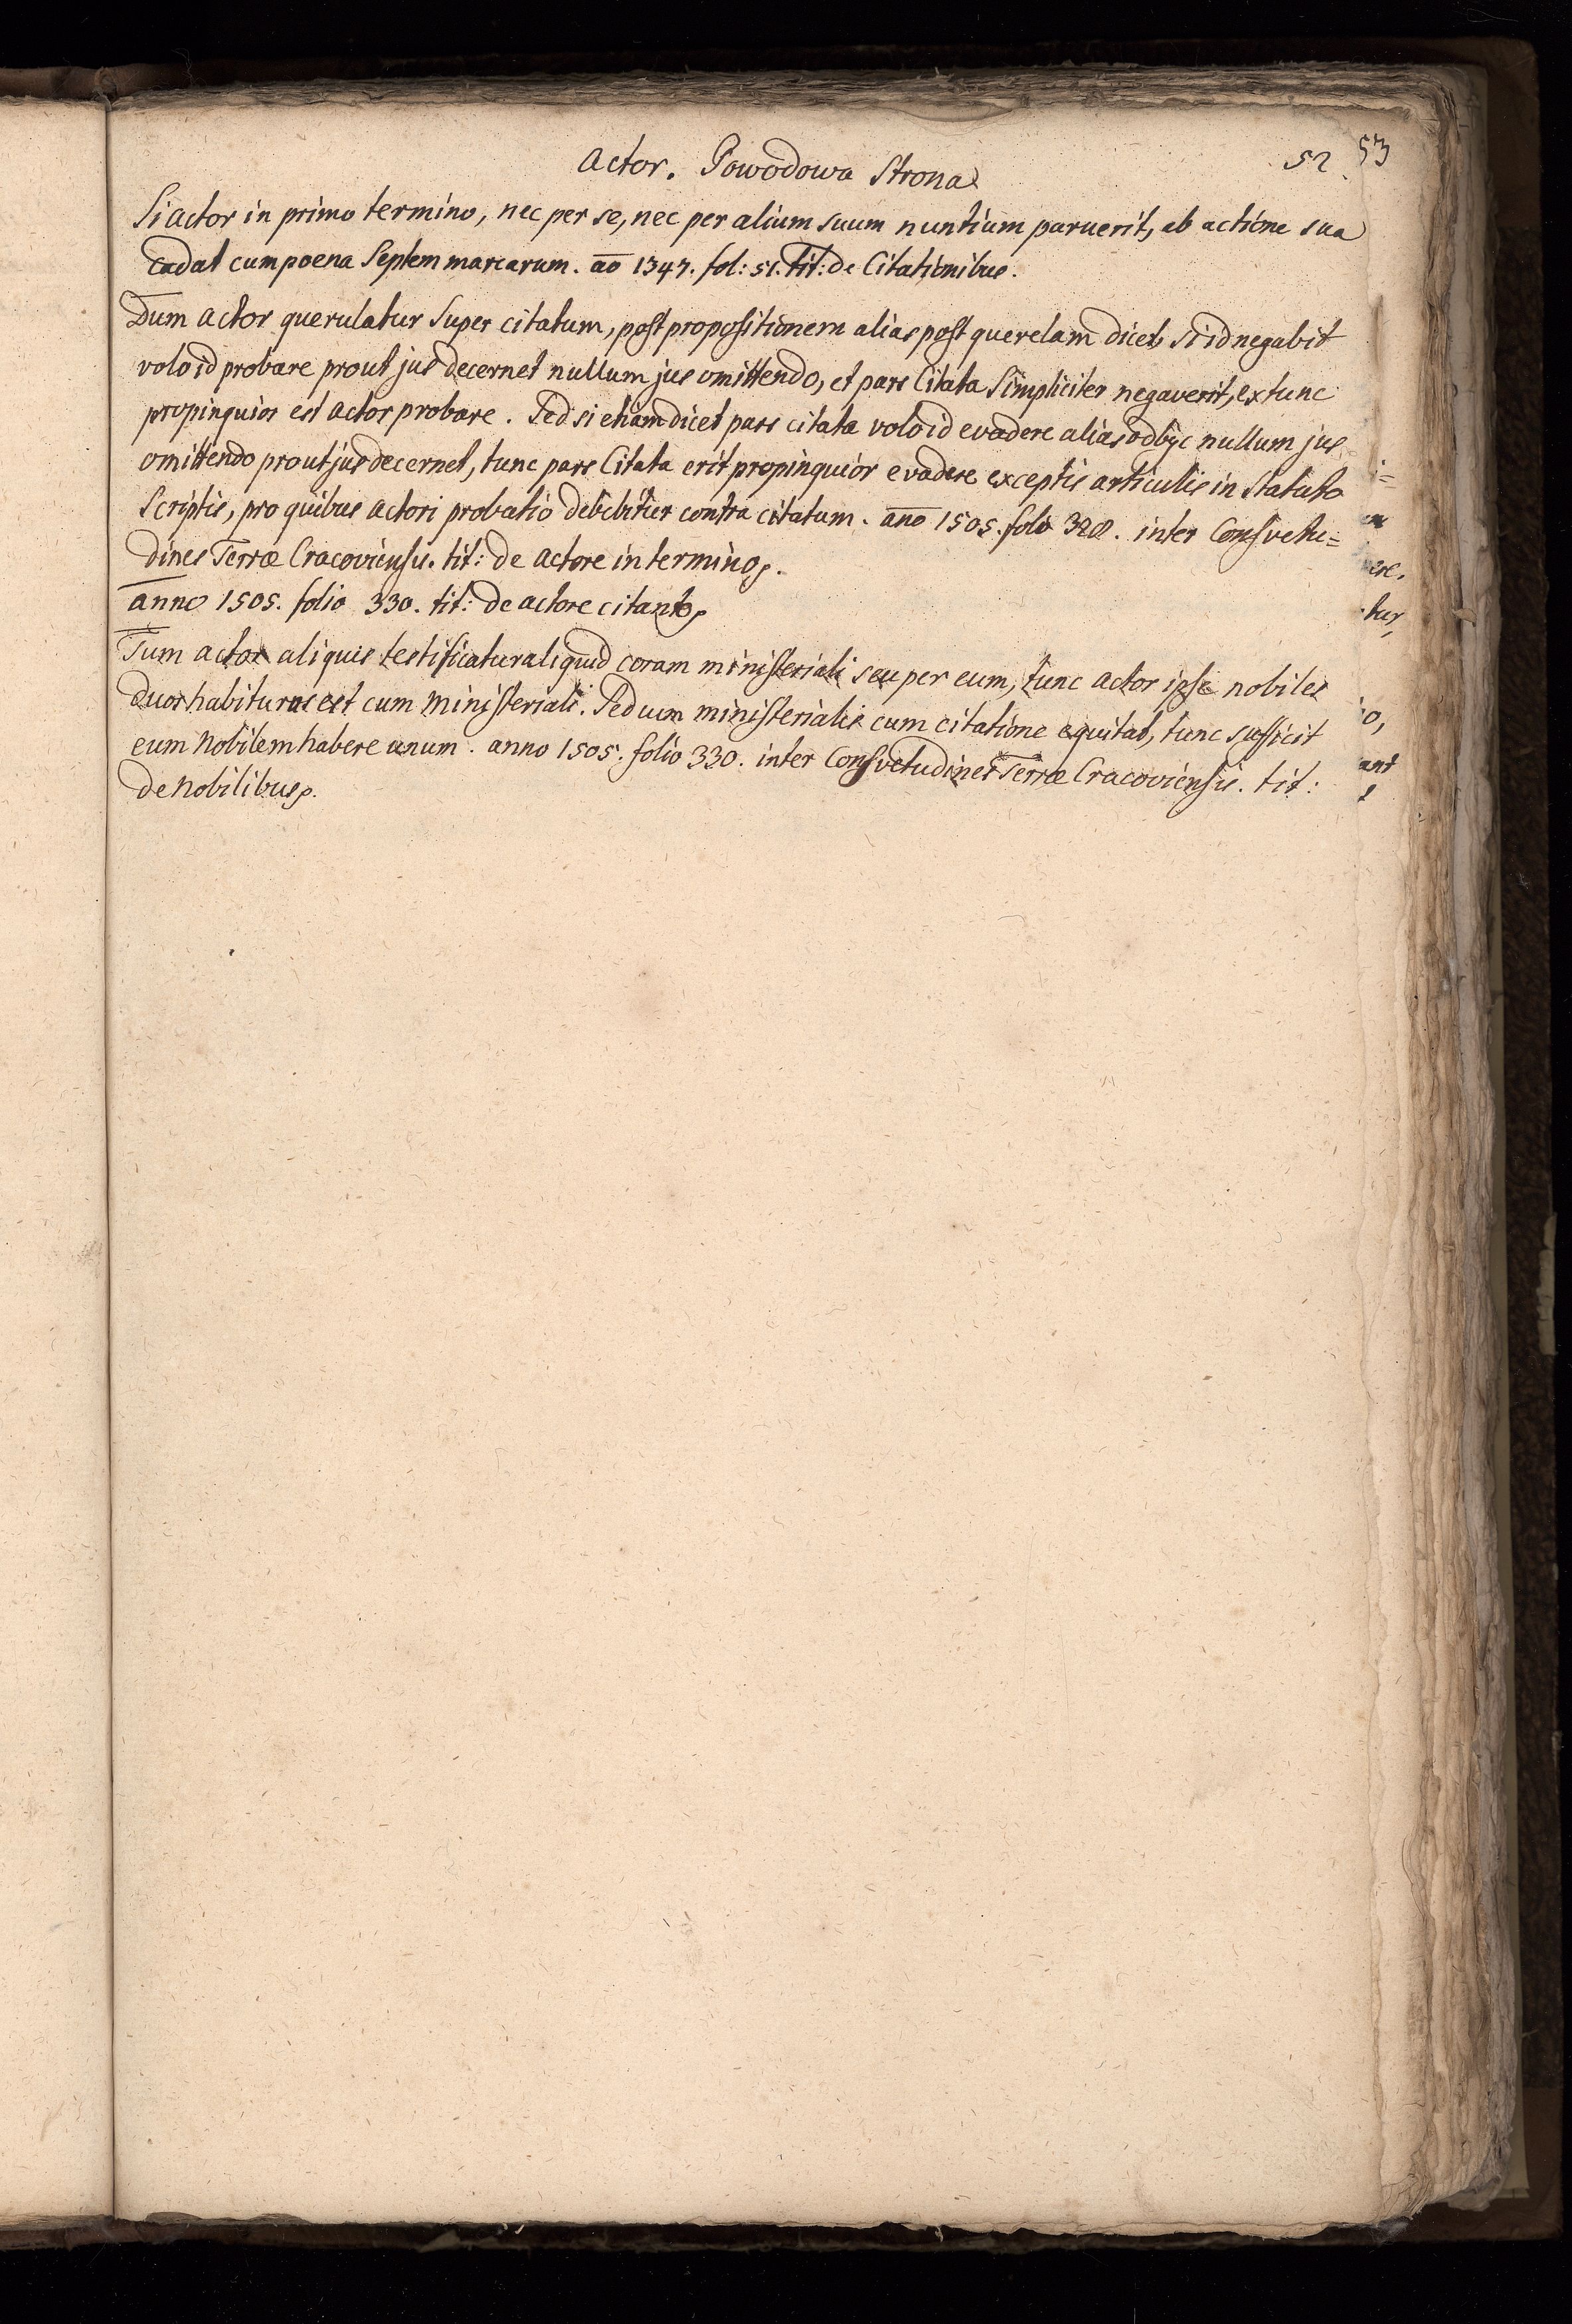 Actor. Powodowa Strona
52 53
Si actor in primo termino, nec per se, nec per alium suum nuntium paruerit, ab actione sua
cadat cum poena Septem marcarum. ao 1347. fol: 51. tit: de Citationibus.
Dum actor querulatur super citatum, post propositionem alias post querelam dicet, si id negabit
volo id probare prout jus decernet nullum jus omittendo, et pars Citata Simpliciter negaverit, extunc
propinquior est actor probare. Sed si etiam dicet pars citata volo id evadere alias odbyc nullum jus
omittendo prout jus decernet, tunc pars Citata erit propinquior evadere exceptis articulis in Statuto
Scriptis, pro quibus actori probatio debebitur contra citatum. ano 1505. folio 328. inter Consvetu=
dines Terræ Cracoviensis. tit: de actore in termino.
anno 1505. folio 330. tit: de actore citante.
Tum actor aliquis testificatur aliquid coram ministeriali seu per eum, tunc actor ipse nobiles
duos habiturus est cum ministeriali. Sed um ministerialis cum citatione equitat, tunc sufficit
eum nobilem habere unum. anno 1505. folio 330. inter Consvetudines Terræ Cracoviensis. tit:
de nobilibus.